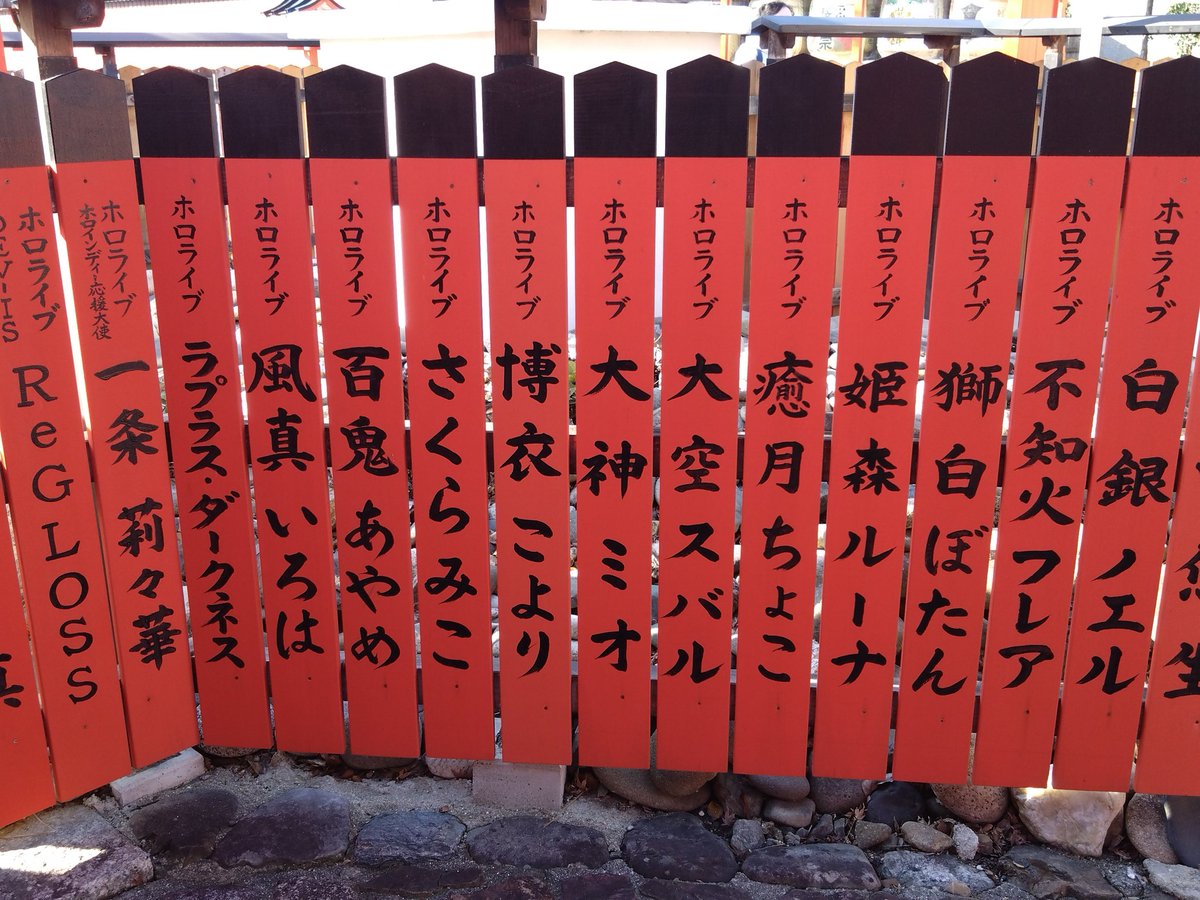 ホロライブ
白銀ノエル
ホロライブ
不知火フレア
ホロライブ
獅白ぼたん
ホロライブ
姫森ルーナ
ホロライブ
癒月ちょこ
ホロライブ
大空スバル
ホロライブ
大神ミオ
ホロライブ
博衣こより
ホロライブ
さくらみこ
ホロライブ
百鬼あやめ
ホロライブ
風真いろは
ホロライブ
ラプラス・ダークネス
ホロライブ
ホロインディー応援大使
一条莉々華
ホロライブ
DEV-IS
ReGLOSS